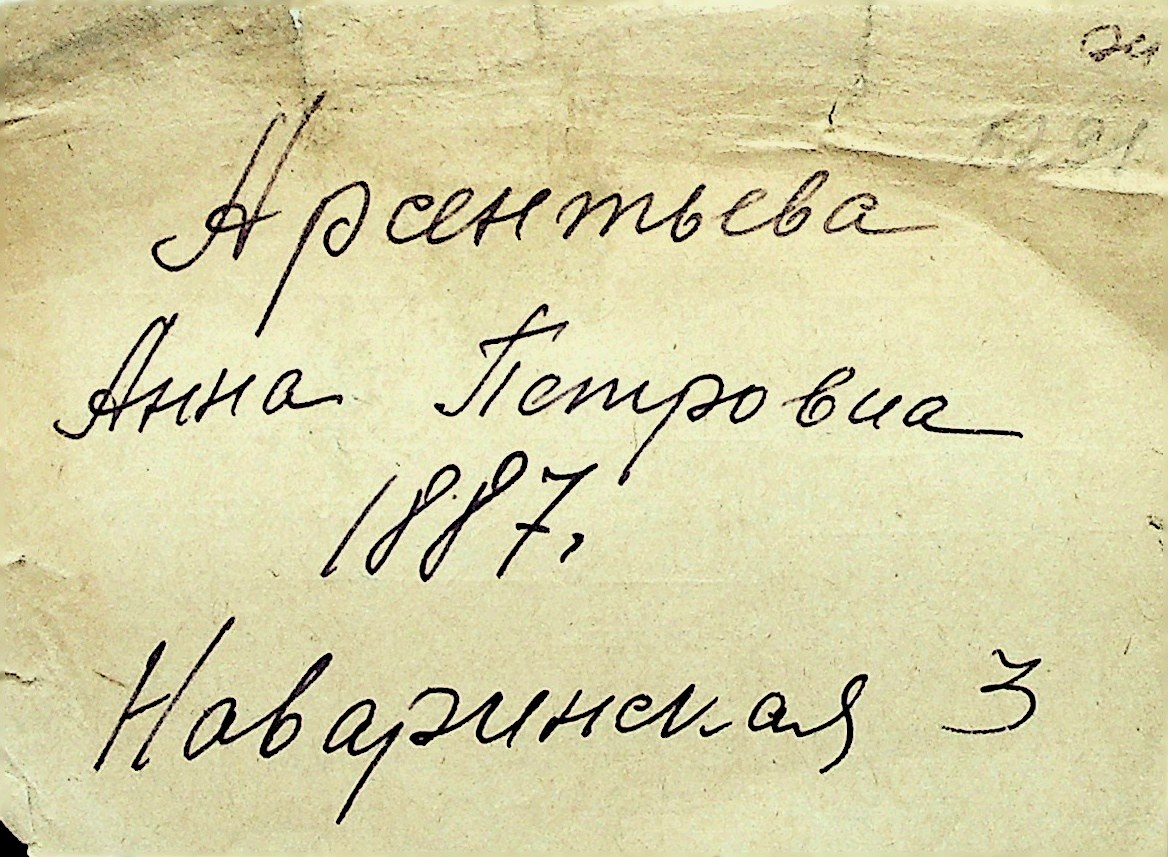 Арсентьева
Анна Петровна
1887.
Наваринская 3